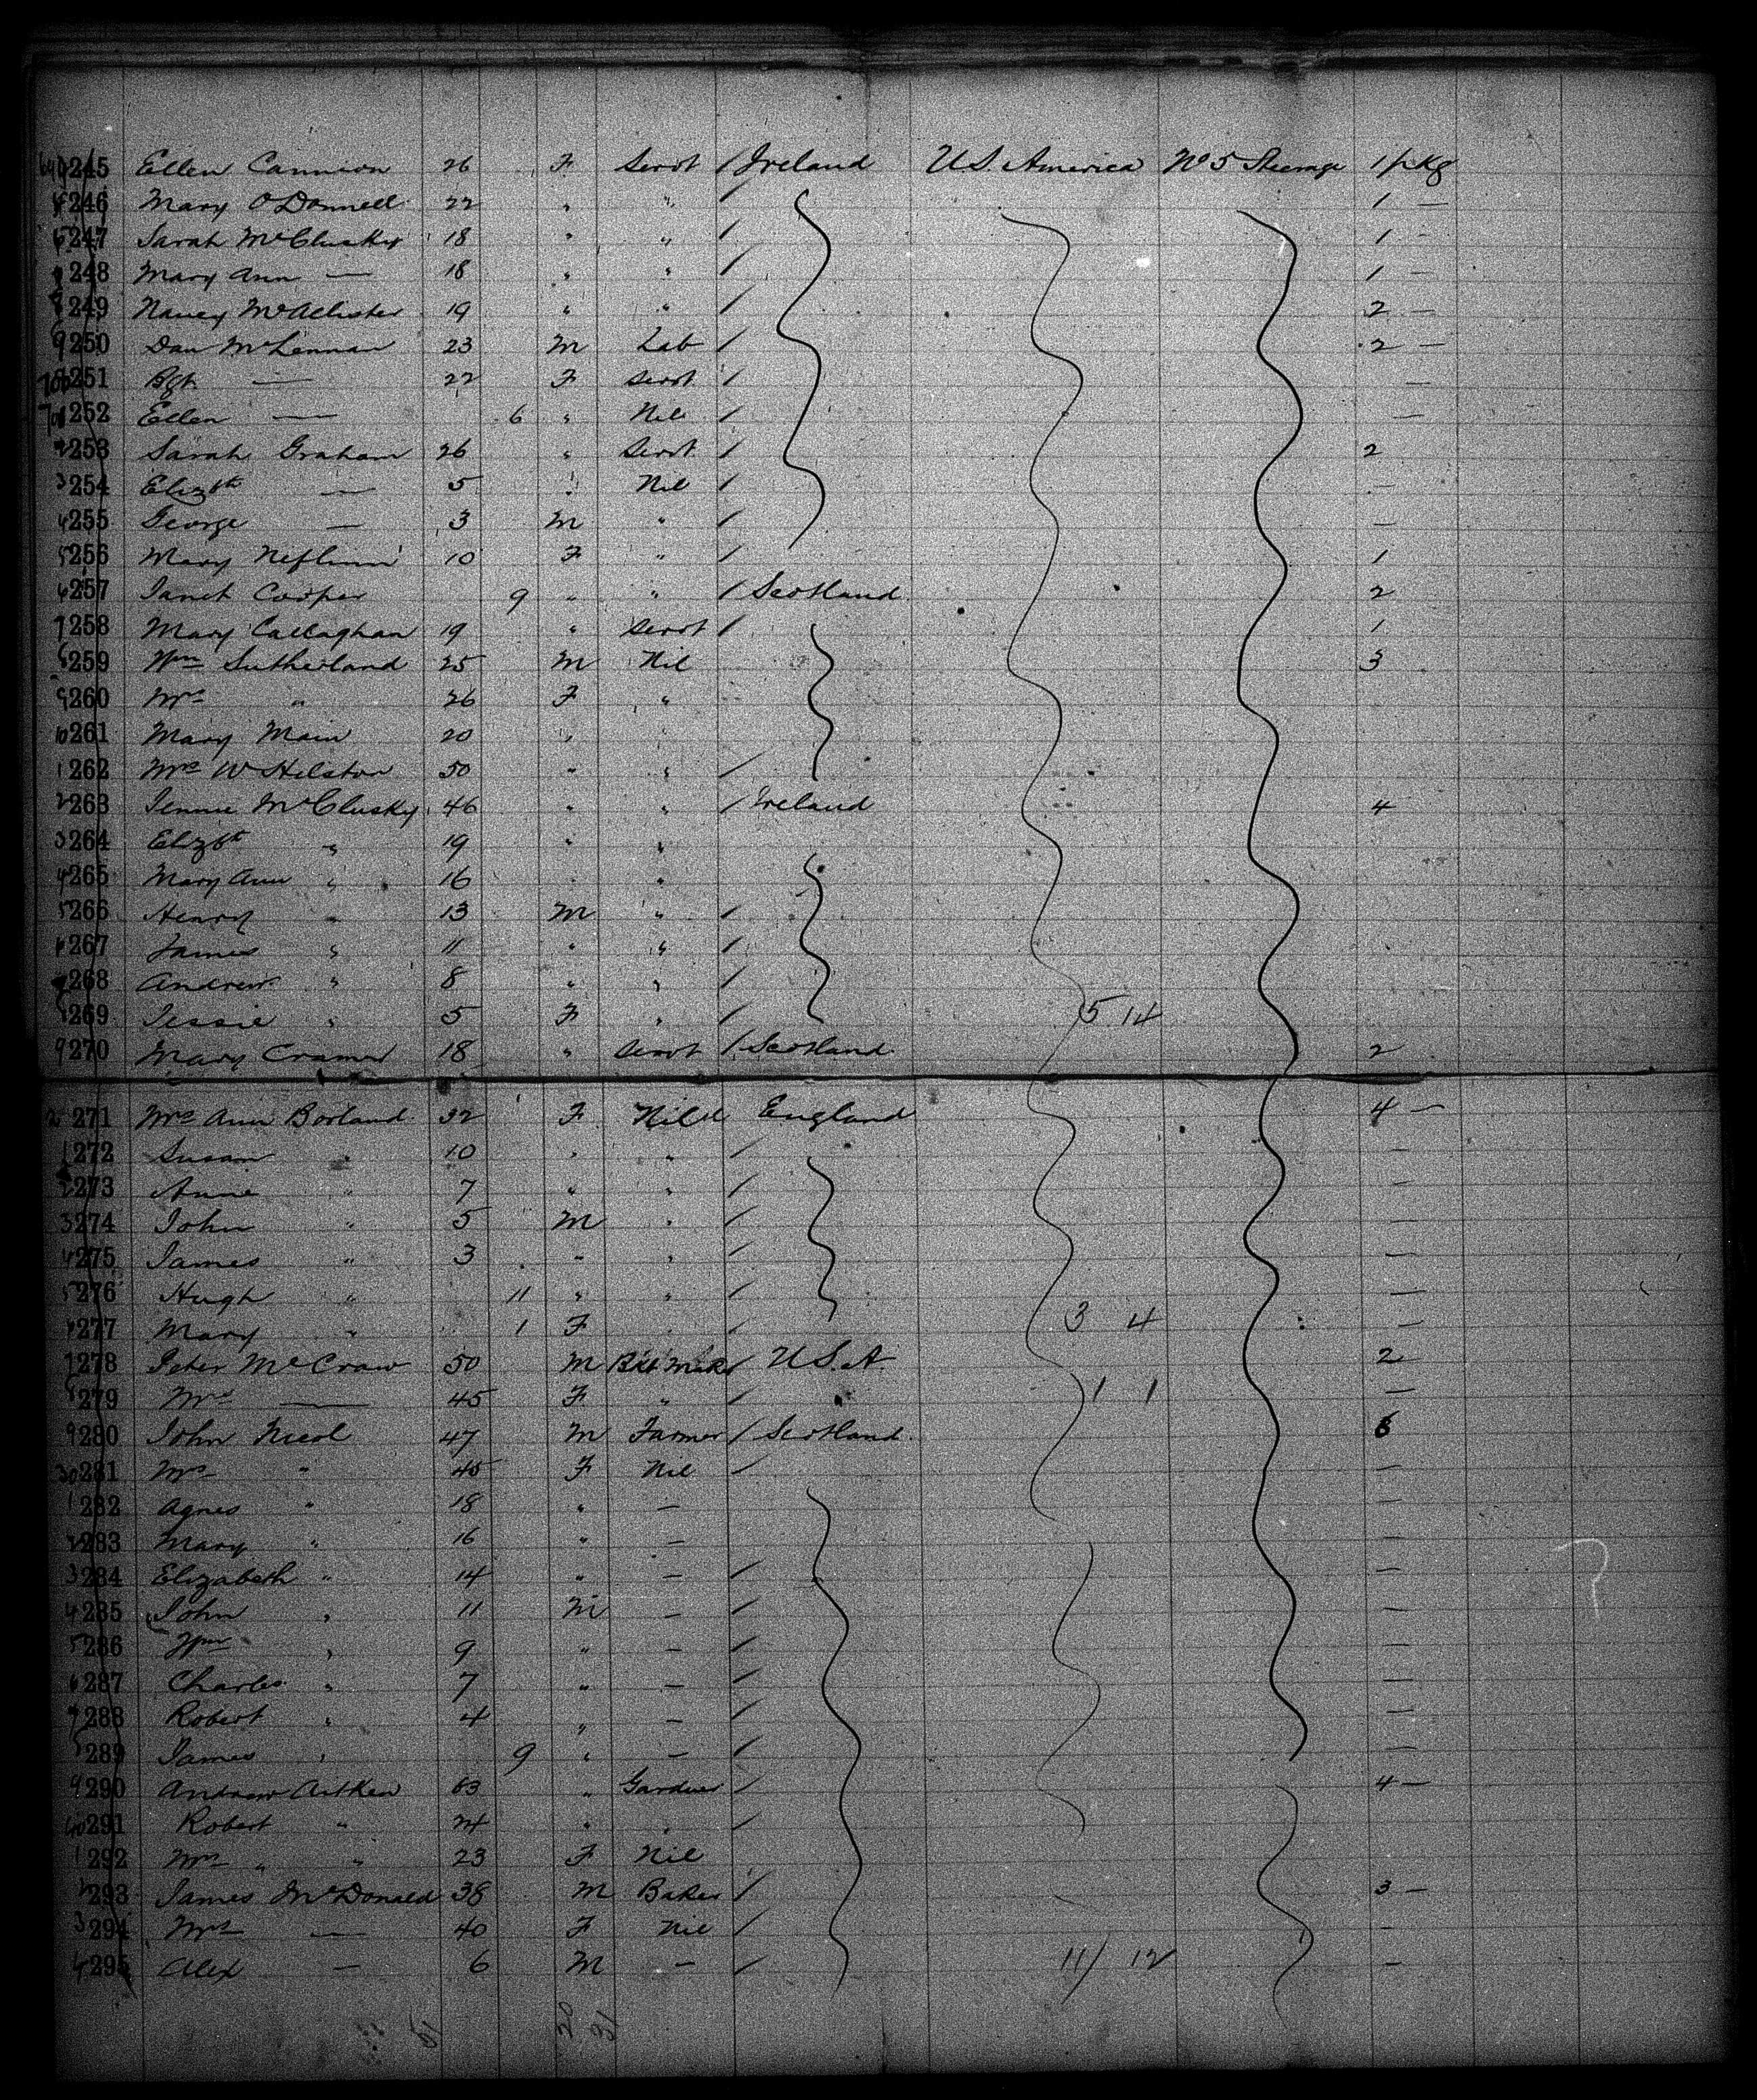 245 Ellen Cannion 26 F Servt / Ireland U.S. America No 5 Steerage 1 pkg
246 Mary O'Donnell 22 " " / 1 —
247 Sarah McClusky 18 " " / 1 -
248 Mary Ann — 18 " " / 1 —
249 Nancy McAllister 19 " " / 2 —
250 Dan McLennan 23 M Lab / 2 —
251 Bgt — 22 F Servt / —
252 Ellen — 6 " Nil / —
253 Sarah Graham 26 " Servt / 2
254 Elizbth — 5 " Nil / —
255 George — 3 M " / —
256 Mary 10 F " / 1
257 Janet Cooper 9 " " / Scotland 2
258 Mary Callaghan 19 " Servt / 1
259 Wm Sutherland 25 M Nil 3
260 Mrs " 26 F "
261 Mary Main 20 " "
262 Mrs W Hilston 50 " " /
263 Jennie McClusky 46 " " / Ireland 4
264 Elizbt " 19 " "
265 Mary Ann " 16 " "
266 Henry " 13 M " /
267 James " 11 " " /
268 Andrew " 8 " " /
269 Jessie " 5 F " / 5 14
270 Mary 18 " Servt / Scotland 2
271 Mrs Ann Borland 32 F Nil England 4 —
272 Susan " 10 " " / —
273 Annie " 7 " " / —
274 John " 5 M " / —
275 James " 3 " " / —
276 Hugh " 11 " " / —
277 Mary " 1 F " / 3 4 —
278 Peter McCraw 50 M / U.S.A 2
279 Mrs — 45 F " / 1 1 —
280 John Nicol 47 M Farmer / Scotland 6
281 Mrs " 45 F Nil / —
282 Agnes " 18 " — —
283 Mary " 16 " — —
284 Elizabeth " 14 " — / —
285 John " 11 M — / —
286 Wm " 9 " — / —
287 Charles " 7 " — / —
288 Robert " 4 " — / —
289 James " 9 " — / —
290 Andrew Aitken 63 " Gardner / 4 —
291 Robert " 24 " " /
292 Mrs " " 23 F Nil
293 James McDonald 38 M Baker / 3 —
294 Mrs — 40 F Nil / —
295 Alex — 6 M — / 11/ 12 —